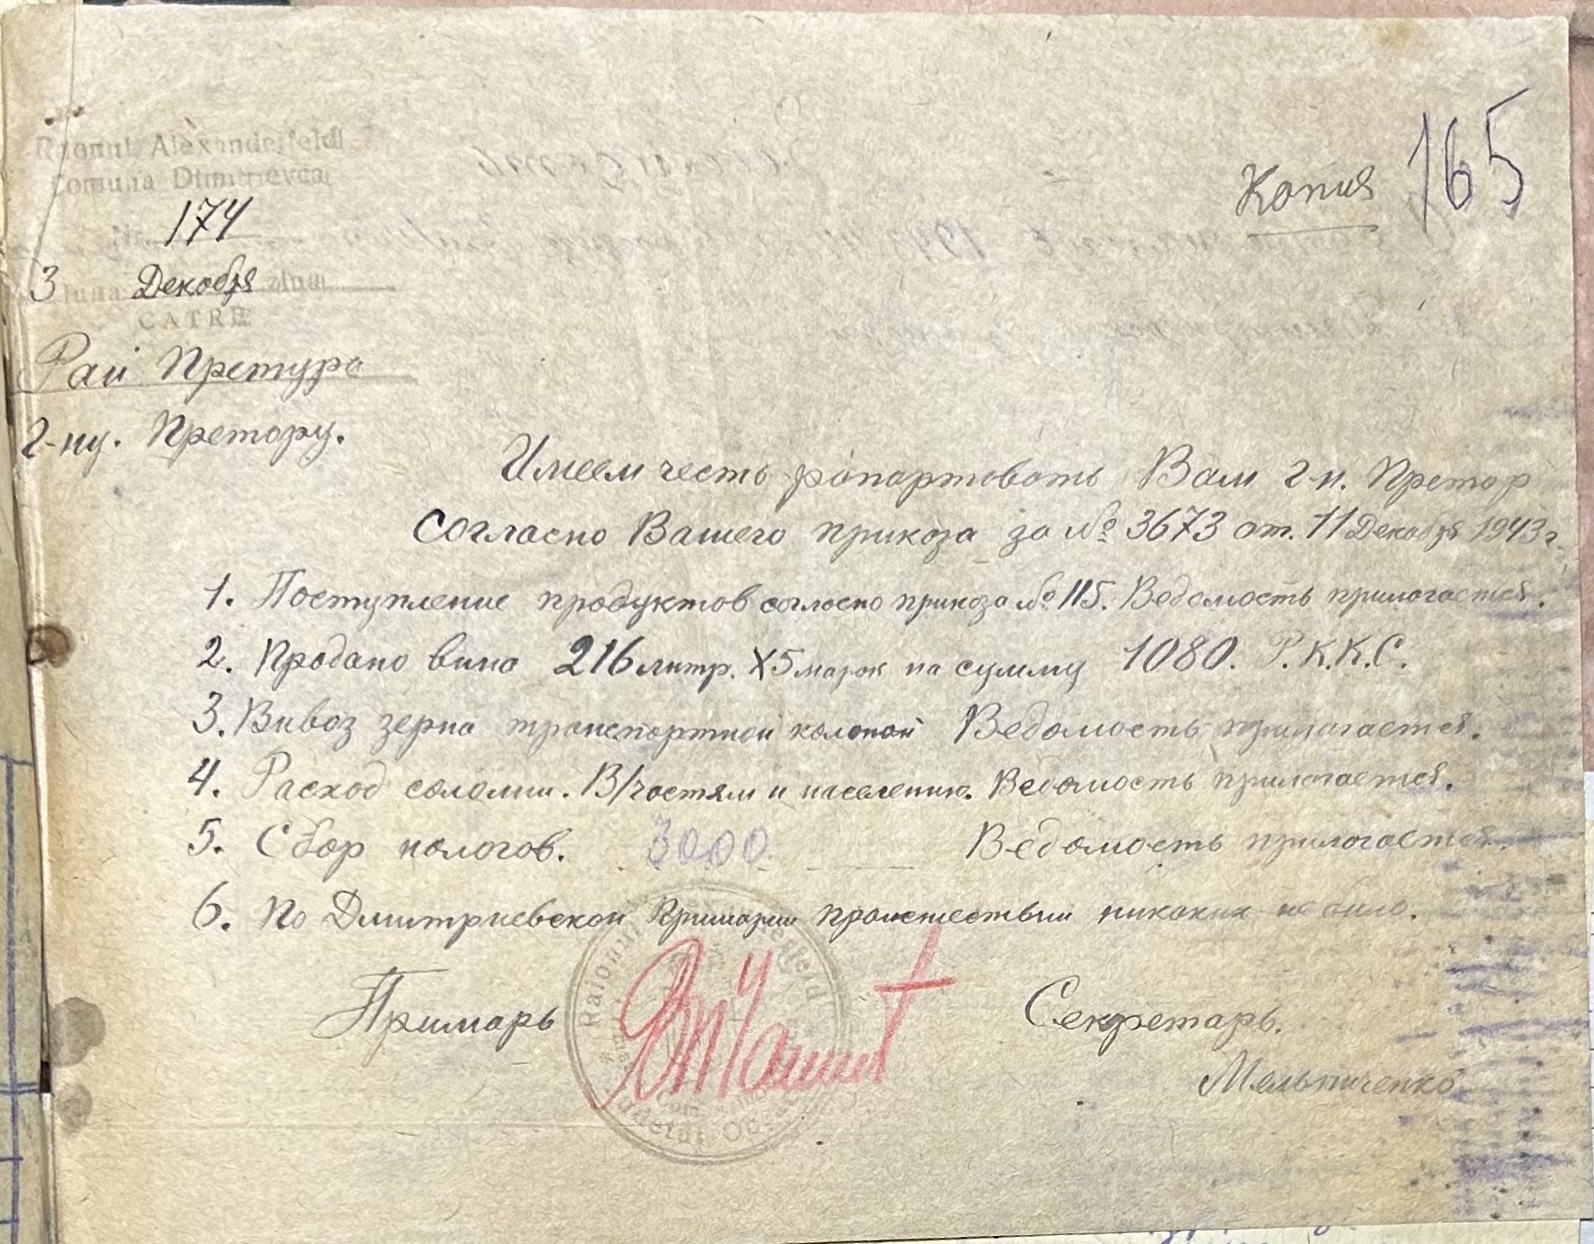 Копия 165
Raonul Alexanderfeld
Comuna Dimitrievca
174
3 Декабря
CATRE
Рай Претура
г-ну. Претору.
Имеем честь рапартовать Вам г-н. Претор
согласно Вашего приказа за № 3673 от. 11 Декабря 1943 г.
1. Поступление продуктов согласно приказа № 115. Ведомость прилагается.
2. Продано вина 216 литр. X 5 марок на сумму 1080. Р.К.К.С.
3. Вивоз зерна транспортной колоной Ведомость прилагается.
4. Расход соломи. В/частям и населению. Ведомость прилагается.
5. Сбор налогов. 3000 Ведомость прилагается.
6. По Дмитриевской Примарии происшествий никаких не било.
Примарь Секретарь.
Raionul
Judetul
Мельниченко